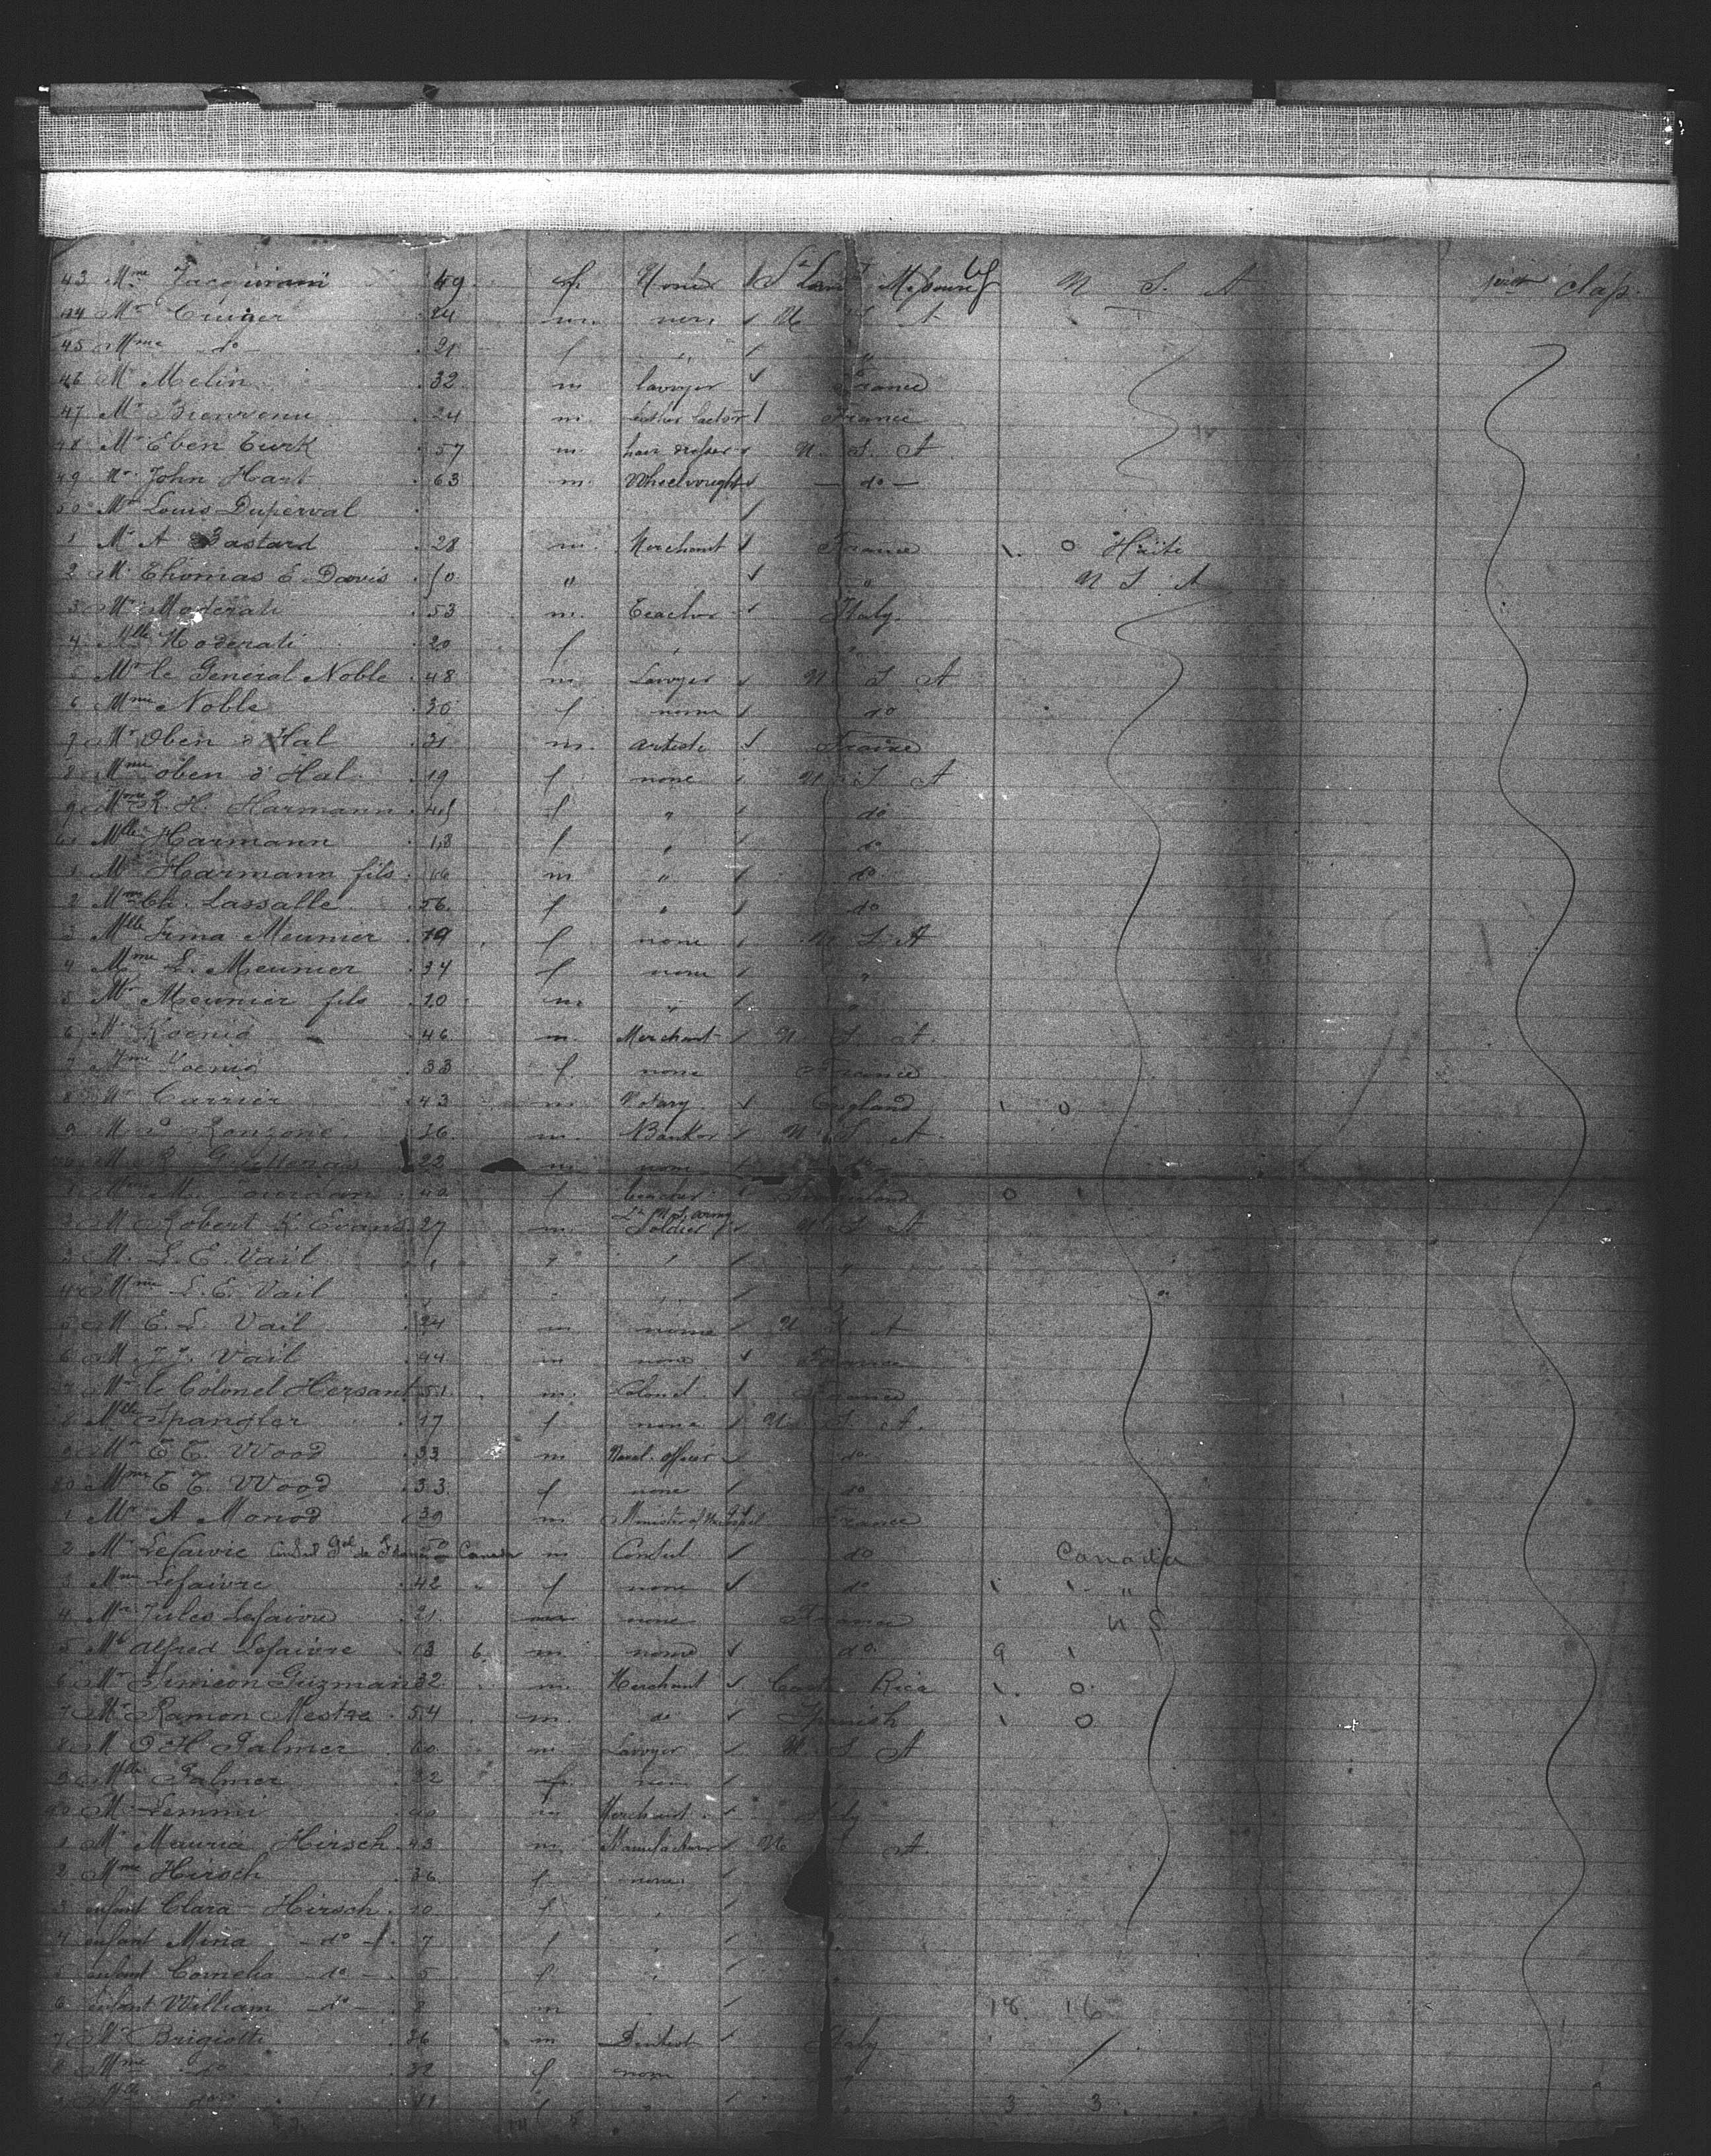 43 Mme 49 f None St Louis Missouri U. S. A first class
44 Mr Cruger 24 m none U S A
45 Mme do 21 f " "
46 Mr Melin 32 m lawyer France
47 Mr Bienvenu 24 m France
48 Mr Eben Turk 57 m hair dresser U. S. A
49 Mr John Hart 63 m Wheelwright do
50 Mr Louis Duperval
1 Mr A Bastard 28 m Merchant France 1. 0 Haïti
2 Mr Thomas E Davis 50 " " U S A
3 Mr Moderati 53 m Teacher Italy
4 Mlle Moderati 20 f " "
5 Mr le General Noble 48 m Lawyer U S A
6 Mme Noble 30 f none do
7 Mr Oben d'Hal 31 m artiste France
8 Mme Oben d'Hal 19 f none U S A
9 Mme R. H. Harmann 45 f " do
60 Mlle Harmann 18 f " do
1 Mr Harmann fils 16 m " do
2 Mme Ch. Lassalle 56 f " do
3 Mlle Irma Meunier 19 f none U S A
4 Mme L. Meunier 34 f none "
5 Mr Meunier fils 10 m " "
6 Mr Koenig 46 m Merchant U S A
7 Mme Koenig 33 f none France
8 Mr Carrier 43 m Notary England 1 0
9 M Ronzone 36 m Banker U S A
M R. G. 22 m none do
1 Mme M. Jourdan 40 f teacher 0 1
2 M Robert K. Evans 27 m Lt U.S. army Soldier U S A
3 M. L. E. Vail " " " "
4 Mme L. E. Vail
5 M E. L. Vail 24 m none U S A
6 M J. J. Vail 44 m none France
7 Mr le Colonel Hersant 51 m Colonel France
8 Mlle Spangler 17 f none U S A
9 Mr E T. Wood 33 m Naval officer do
80 Mme E T. Wood 33 f none do
1 Mr A Monod 39 m Minister of the Gospel France
2 Mr Lefaivre Consul Gal de France Canada 50 m Consul do Canada
3 Mme Lefaivre 42 f none do 1 1 "
4 Mr Jules Lefaivre 21 m none France U S
5 Mr Alfred Lefaivre 13 6 m none do 9 1
6 Mr Simeon Guzman 32 m Merchant Costa Rica 1. 0
7 Mr Ramon Mestre 54 m do Spanish 1 0
8 M O H Palmer 60 m Lawyer U S A
9 Mlle Palmer 22 f none
90 M Lemmi 40 m Merchant Italy
1 Mr Maurice Hirsch 43 m Manufacturer U A
2 Mme Hirsch 36 f none
3 enfant Clara Hirsch 10 f "
4 enfant Mina do 7 f "
5 enfant Cornelia do 5 f "
6 enfant William do 8 m 18 16
7 Mr Brigiotti 36 m Dentist Italy
8 Mme do 32 f none "
Mlle do 11 f " 3 3